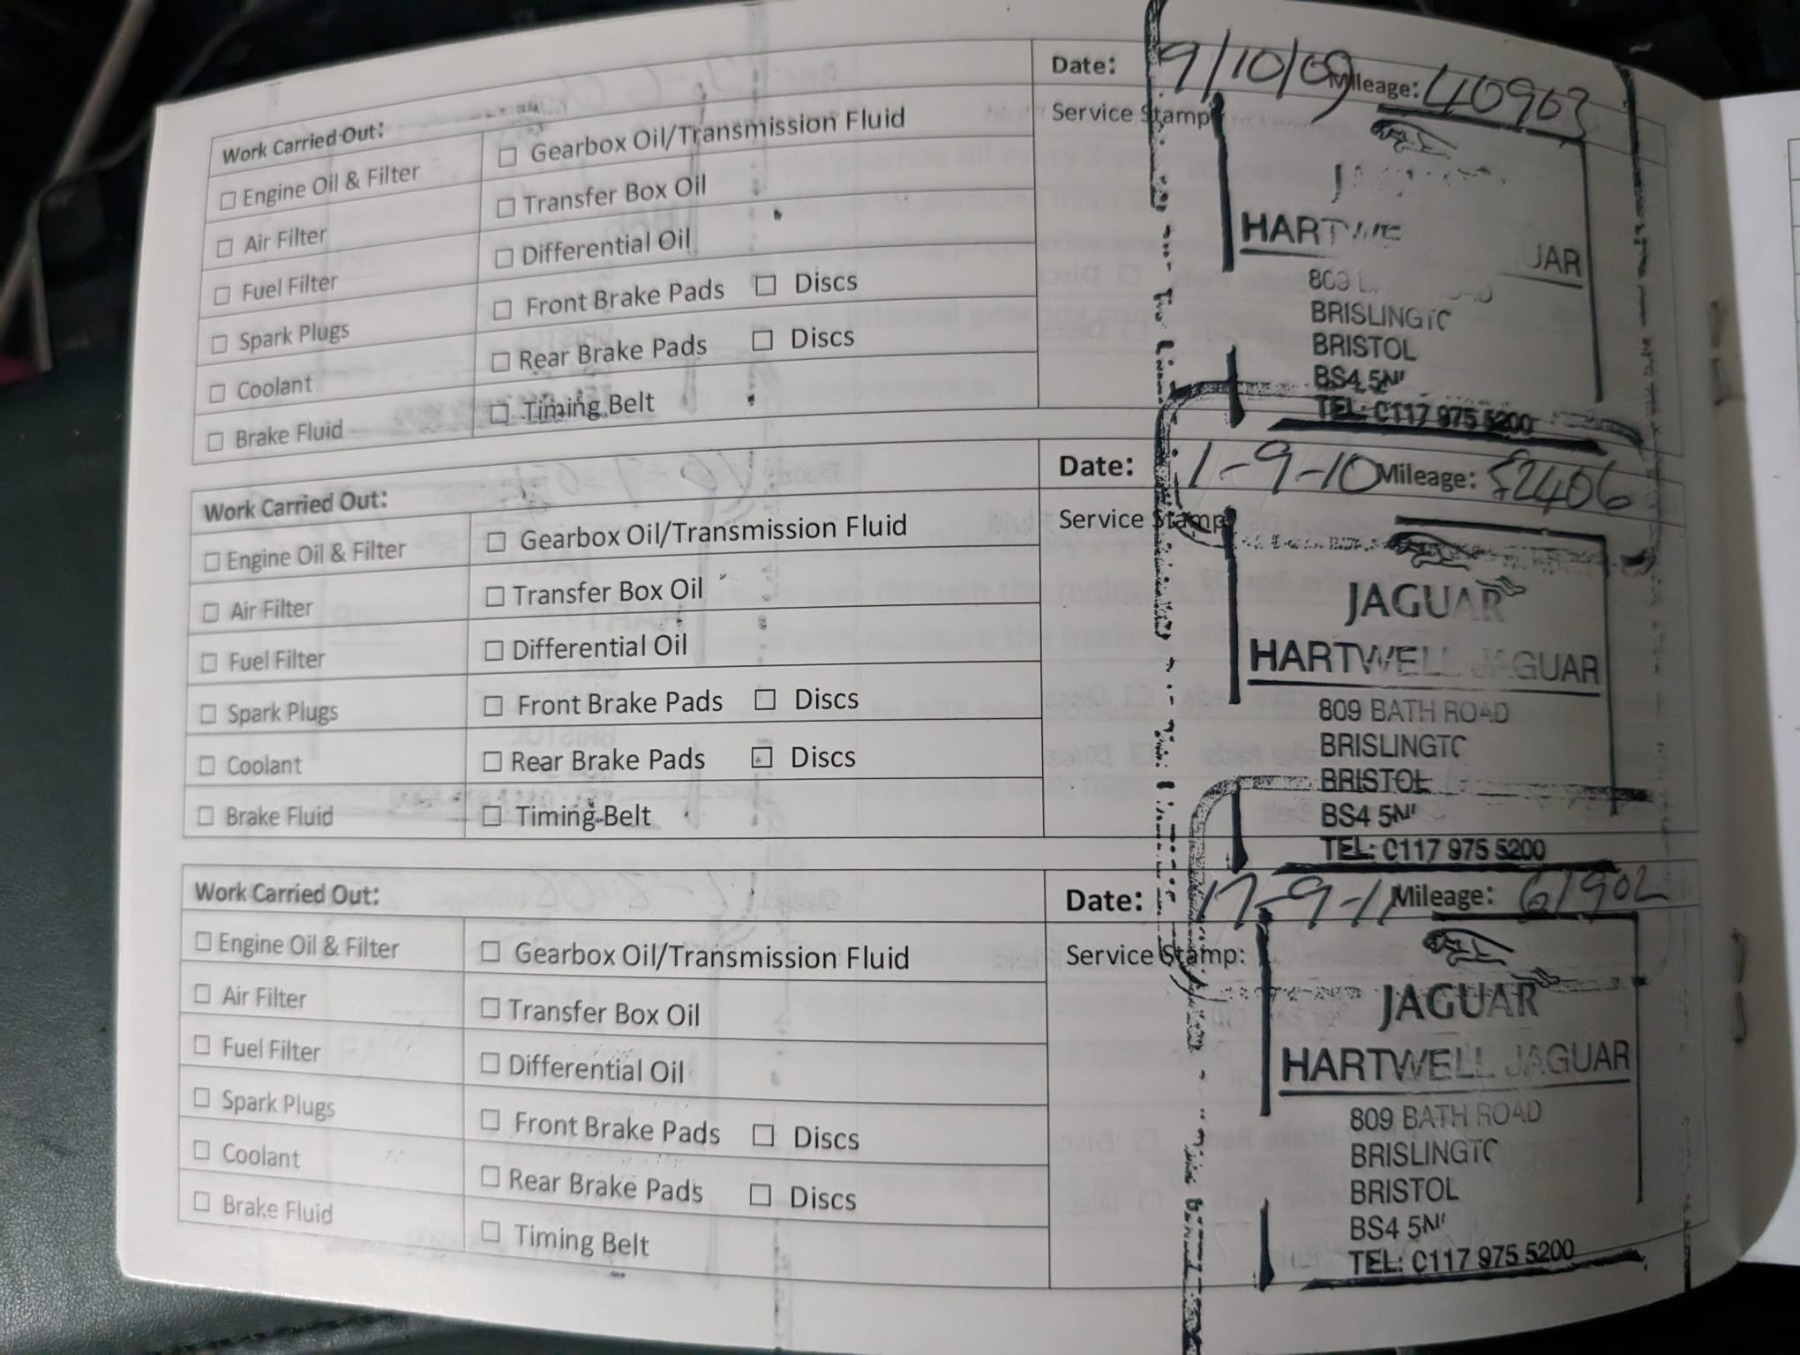 Date: 9/10/09 Mileage: 40903
Work Carried Out:
Service Stamp
☐ Engine Oil & Filter ☐ Gearbox Oil/Transmission Fluid
☐ Air Filter ☐ Transfer Box Oil
☐ Fuel Filter ☐ Differential Oil
☐ Spark Plugs ☐ Front Brake Pads ☐ Discs
☐ Coolant ☐ Rear Brake Pads ☐ Discs
☐ Brake Fluid ☐ Timing Belt
BRISLINGTC
BRISTOL
BS4 5N
TEL: 0117 975 5200
Date: 1-9-10 Mileage: 52406
Work Carried Out:
Service Stamp
☐ Engine Oil & Filter ☐ Gearbox Oil/Transmission Fluid
☐ Air Filter ☐ Transfer Box Oil
☐ Fuel Filter ☐ Differential Oil
☐ Spark Plugs ☐ Front Brake Pads ☐ Discs
☐ Coolant ☐ Rear Brake Pads ☐ Discs
☐ Brake Fluid ☐ Timing Belt
JAGUAR
HARTWELL JAGUAR
809 BATH ROAD
BRISLINGTC
BRISTOL
BS4 5N
TEL: 0117 975 5200
Work Carried Out:
Date: 17-9-11 Mileage: 61902
Service Stamp:
☐ Engine Oil & Filter ☐ Gearbox Oil/Transmission Fluid
☐ Air Filter ☐ Transfer Box Oil
☐ Fuel Filter ☐ Differential Oil
☐ Spark Plugs ☐ Front Brake Pads ☐ Discs
☐ Coolant ☐ Rear Brake Pads ☐ Discs
☐ Brake Fluid ☐ Timing Belt
JAGUAR
HARTWELL JAGUAR
809 BATH ROAD
BRISLINGTC
BRISTOL
BS4 5N
TEL: 0117 975 5200